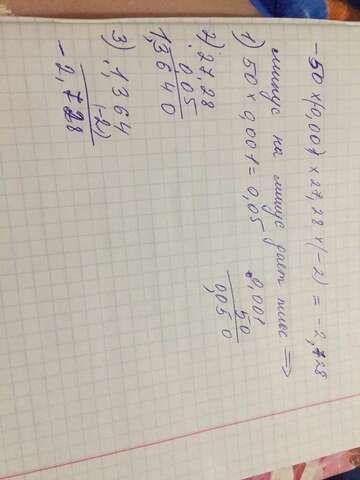 -50 × (0,001 × 27,28 × (-2) = -2,728
минус на минус дает плюс =>
1) 50 × 0,001 = 0,05
0,001
50
0,050
2) 27,28
0,05
1,3640
3) 1,364
(-2)
-2,728